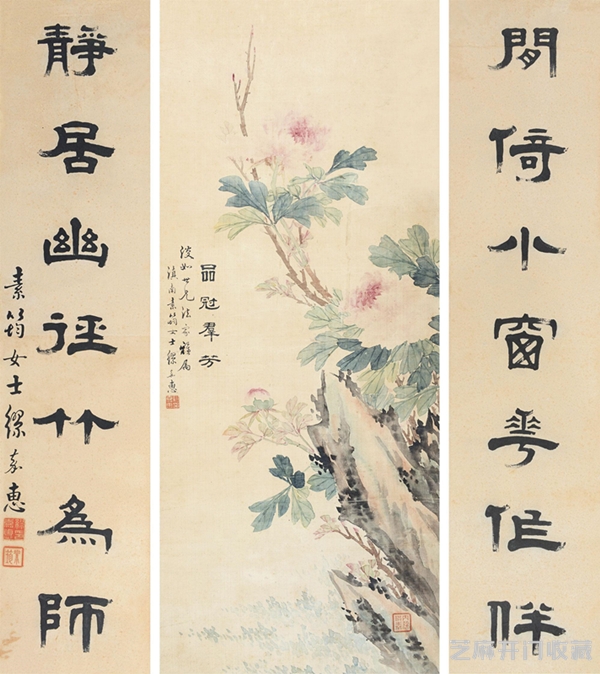 閒倚小窗華作伴
品冠羣芳
如七兄法家雅属
滇南素筠女士繆嘉惠
靜居幽徑竹為師
素筠女士繆嘉惠
芝麻开门收藏